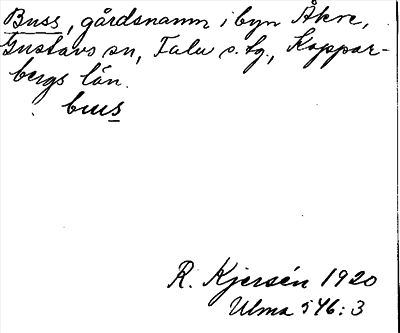 Buss, gårdsnamn i byn Åkre,
Gustavs sn, Falu s. tg., Koppar-
bergs län.
bus
R. Kjersén 1920
Ulma 546:3